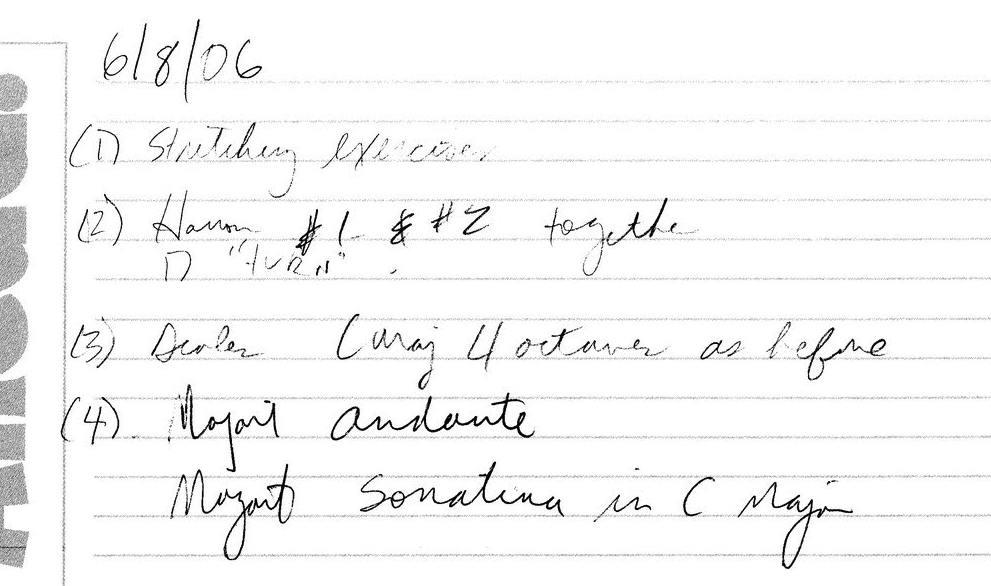 6/8/06
(1) Stretching exercises
(2) Hanon #1 & #2 together
1) "turn"
(3) Scales C maj 4 octaves as before
(4). Mozart andante
Mozart Sonatina in C Major